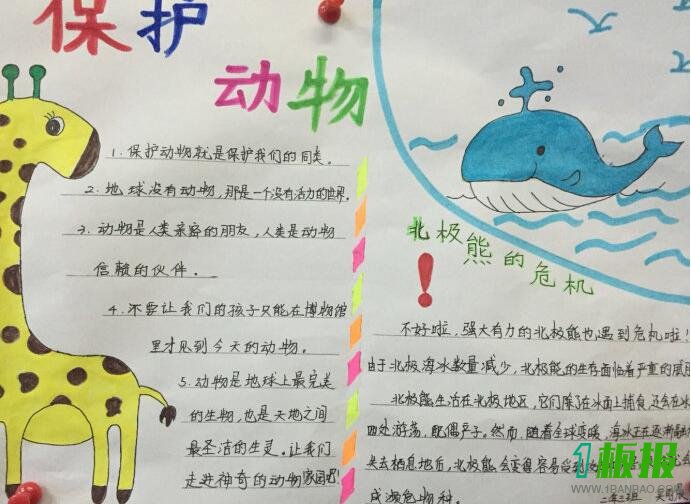 保护
动物
1.保护动物就是保护我们的同类。
2.地球没有动物,那是一个没有活力的世界.
3.动物是人类亲密的朋友,人类是动物
信赖的伙伴.
4.不要让我们的孩子只能在博物馆
里才见到今天的动物.
5.动物是地球上最完美
的生物,也是天地之间
最圣洁的生灵.让我们
走进神奇的动物家园吧!
北极熊的危机
!
不好啦,强大有力的北极熊也遇到危机啦!
由于北极海冰数量减少,北极熊的生存面临着严重的威胁
北极熊生活在北极地区,它们除了在冰面上捕食,还会在冰
四处游荡,配偶产子.然而,随着全球变暖,海冰正在逐渐融
失去栖息地后,北极熊会变得容易受
成濒危物种.
1板报
WWW.1BANBAO.COM